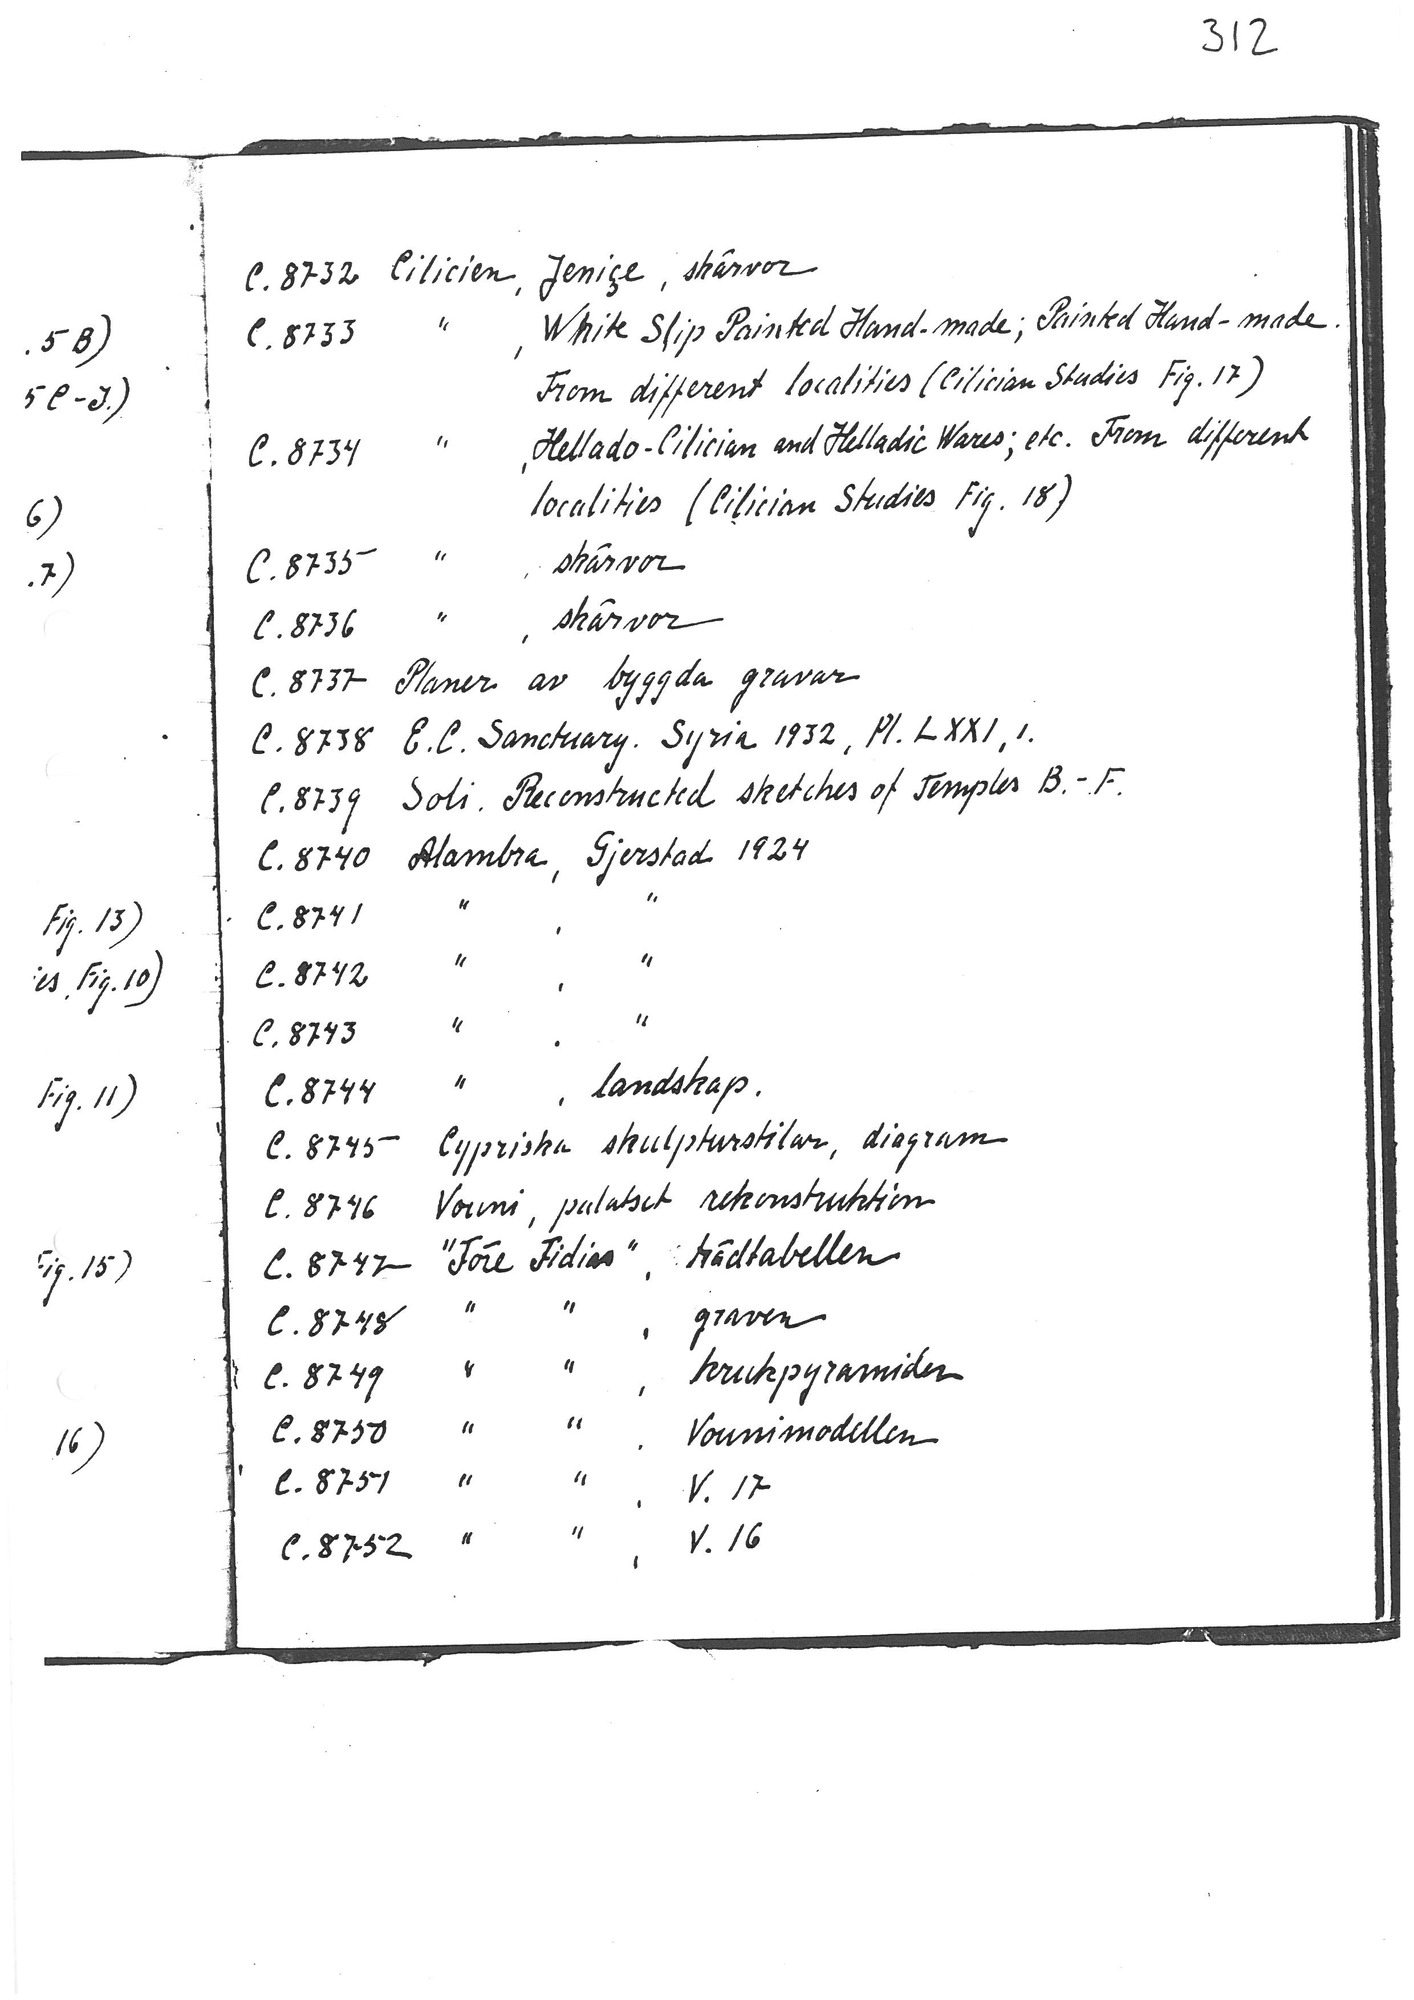 312
.5 B)
5 C-J.)
6)
.7)
Fig. 13)
ies, Fig. 10)
Fig. 11)
Fig. 15)
16)
C. 8732 Cilicien, Jeniçe, skärvor
C. 8733 " , White Slip Painted Hand-made; Painted Hand-made.
From different localities (Cilician Studies Fig. 17)
C. 8734 " , Hellado-Cilician and Helladic Wares; etc. From different
localities (Cilician Studies Fig. 18)
C. 8735 " , skärvor
C. 8736 " , skärvor
C. 8737 Planer av byggda gravar
C. 8738 E.C. Sanctuary. Syria 1932, Pl. LXXI, 1.
C. 8739 Soli. Reconstructed sketches of Temples B.-F.
C. 8740 Alambra, Gjerstad 1924
C. 8741 " , "
C. 8742 " , "
C. 8743 " . "
C. 8744 " , landskap.
C. 8745 Cypriska skulpturstilar, diagram
C. 8746 Vouni, palatset rekonstruktion
C. 8747 "Före Fidias", trädtabellen
C. 8748 " " , graven
C. 8749 " " , krukpyramiden
C. 8750 " " . Vounimodellen
C. 8751 " " , V. 17
C. 8752 " " , V. 16